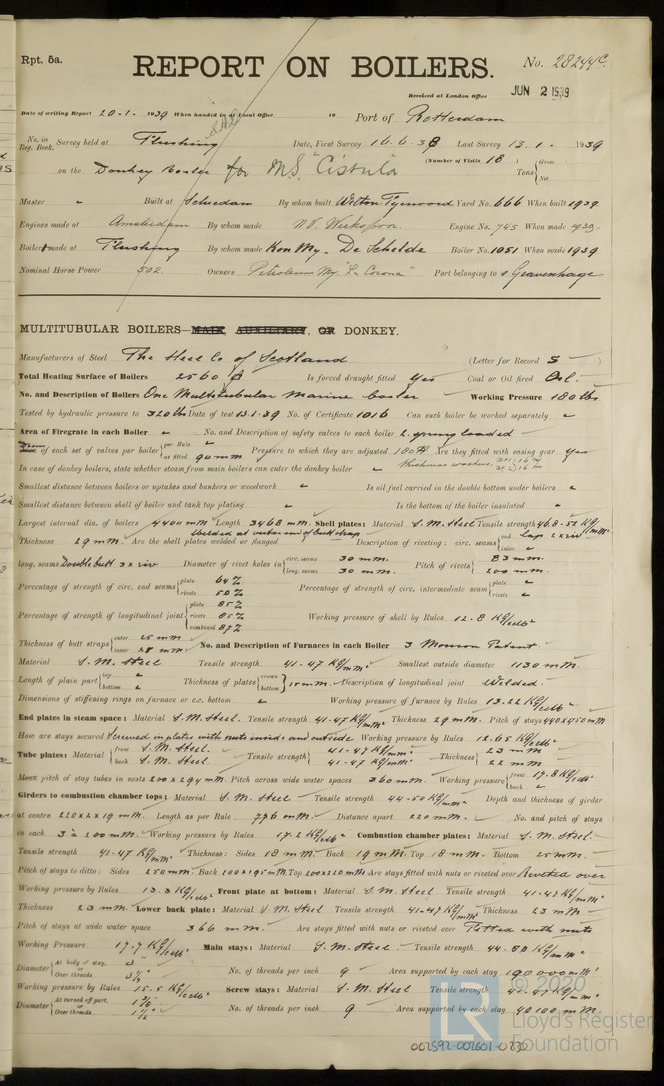 Rpt. 5a.
REPORT ON BOILERS.
No. 28244C.
Received at London Office JUN 2 1939
Date of writing Report 20-1- 1939 When handed in at Local Office 19 Port of Rotterdam
No. in Reg. Book. Survey held at Flushing Date, First Survey 16.6.38 Last Survey 13.1- 1939
on the Donkey boiler for M.S. "Cistula" (Number of Visits 18) Tons { Gross Net
Master " Built at Schiedam By whom built Wilton-Fijenoord Yard No. 666 When built 1939
Engines made at Amsterdam By whom made N.V. Werkspoor Engine No. 745 When made 1939.
Boiler made at Flushing By whom made Kon My. De Schelde Boiler No. 1051 When made 1939
Nominal Horse Power 502. Owners Petroleum My. "La Corona" Port belonging to s Gravenhage
MULTITUBULAR BOILERS—MAIN AUXILIARY, OR DONKEY.
Manufacturers of Steel The Steel Co of Scotland (Letter for Record S )
Total Heating Surface of Boilers 2560 Is forced draught fitted Yes Coal or Oil fired Oil.
No. and Description of Boilers One Multitubular marine boiler Working Pressure 180 lbs
Tested by hydraulic pressure to 320 lbs Date of test 13.1.39 No. of Certificate 1016 Can each boiler be worked separately
Area of Firegrate in each Boiler No. and Description of safety valves to each boiler 2. spring loaded
of each set of valves per boiler { per Rule as fitted 90 mm Pressure to which they are adjusted Are they fitted with easing gear Yes
In case of donkey boilers, state whether steam from main boilers can enter the donkey boiler thickness washers
Smallest distance between boilers or uptakes and bunkers or woodwork Is oil fuel carried in the double bottom under boilers
Smallest distance between shell of boiler and tank top plating Is the bottom of the boiler insulated
Largest internal dia. of boilers 4400 mm Length 3468 mm. Shell plates: Material S.M. Steel Tensile strength 46.8-52 KG/mm²
Thickness 29 mm. Are the shell plates welded or flanged Welded at outer end of butt strap Description of riveting: circ. seams { end lap 2x riv inter.
long. seams Double butt 3x riv Diameter of rivet holes in { circ. seams 30 mm. long. seams 30 mm. Pitch of rivets { 83 mm. 200 mm.
Percentage of strength of circ. end seams { plate 64 % rivets 50 % Percentage of strength of circ. intermediate seam { plate rivets
Percentage of strength of longitudinal joint { plate 85 % rivets 85 % combined 87 % Working pressure of shell by Rules 12.8 KG/cm²
Thickness of butt straps { outer 25 mm inner 28 mm No. and Description of Furnaces in each Boiler 3 Morison Patent.
Material S.M. Steel Tensile strength 41-47 KG/mm² Smallest outside diameter 1130 mm.
Length of plain part { top bottom Thickness of plates { crown bottom } 15 mm. Description of longitudinal joint Welded.
Dimensions of stiffening rings on furnace or c.c. bottom Working pressure of furnace by Rules 13.22 KG/cm²
End plates in steam space: Material S.M. Steel. Tensile strength 41-47 KG/mm² Thickness 29 mm. Pitch of stays 440x450 mm
How are stays secured Screwed in plates with nuts inside and outside Working pressure by Rules 12.65 KG/cm²
Tube plates: Material { front S.M. Steel. back S.M. Steel Tensile strength { 41-47 KG/mm² 41-47 KG/mm² Thickness { 23 mm 22 mm
Mean pitch of stay tubes in nests 200x294 mm. Pitch across wide water spaces 360 mm. Working pressure { front 17.8 KG/cm² back
Girders to combustion chamber tops: Material S.M. Steel Tensile strength 44-50 KG/mm² Depth and thickness of girder
at centre 210x2x19 mm. Length as per Rule 776 mm. Distance apart 220 mm. No. and pitch of stays
in each 3 à 200 mm. Working pressure by Rules 17.2 KG/cm² Combustion chamber plates: Material S.M. Steel.
Tensile strength 41-47 KG/mm² Thickness: Sides 18 mm. Back 19 mm Top 18 mm. Bottom 25 mm.
Pitch of stays to ditto: Sides 250 mm. Back 200x195 mm Top 200x210 mm Are stays fitted with nuts or riveted over Riveted over
Working pressure by Rules 13.3 KG/cm² Front plate at bottom: Material S.M. Steel Tensile strength 41-47 KG/mm²
Thickness 23 mm. Lower back plate: Material S.M. Steel Tensile strength 41-47 KG/mm² Thickness 23 mm
Pitch of stays at wide water space 366 mm. Are stays fitted with nuts or riveted over Fitted with nuts
Working Pressure 17.7 KG/cm² Main stays: Material S.M. Steel Tensile strength 44-50 KG/mm²
Diameter { At body of stay, 3" Over threads. 3¼" No. of threads per inch 9 Area supported by each stay 190000 mm²
Working pressure by Rules 15.5 KG/cm² Screw stays: Material S.M. Steel Tensile strength 41-47 KG/mm²
Diameter { At turned off part, Over threads. No. of threads per inch 9 Area supported by each stay 40100 mm.
© 2020
LR
Lloyd's Register
Foundation
002592-002601-0230